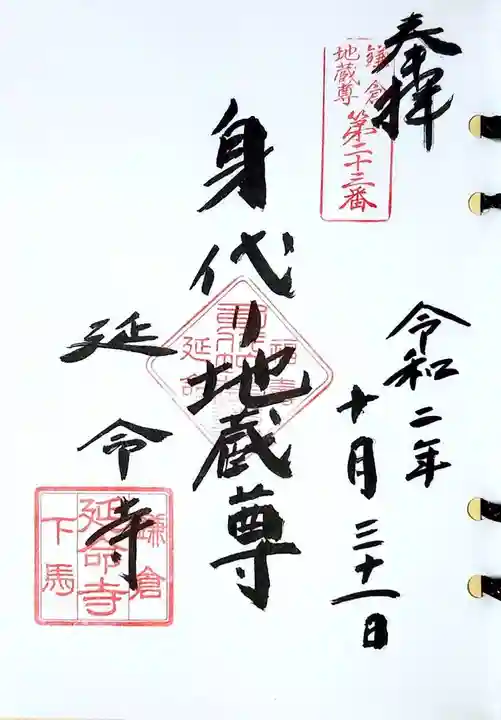 奉拝
鎌倉
地蔵尊
第二十三番
令和二年
十月三十一日
身代り地蔵尊
福寿
延命
延命寺
鎌倉
延命寺
下馬